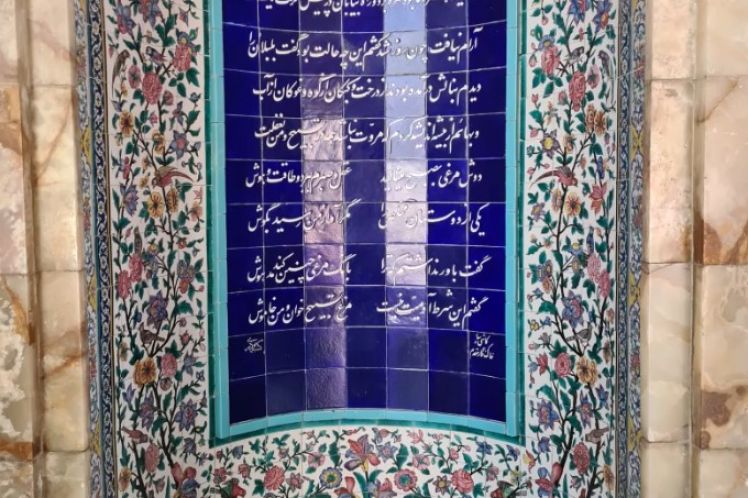 آرام نیافت چون روز شد گفتم این چه حالت بود گفت بلبلان را
دیدم بنالش درآمده بودند از درخت و کبکان از کوه و غوکان از آب
و بهائم از بیشه اندیشه کردم که مروت نباشد همه در تسبیح و من بغفلت
دوش مرغی بصبح مینالید عقل و صبرم ببرد و طاقت و هوش
یکی از دوستان مخلص را مگر آواز من رسید بگوش
گفت باور نداشتم که ترا بانگ مرغی چنین کند مدهوش
گفتم این شرط آدمیت نیست مرغ تسبیح خوان و من خاموش
کاشی ساز
خاک نگار مقدم